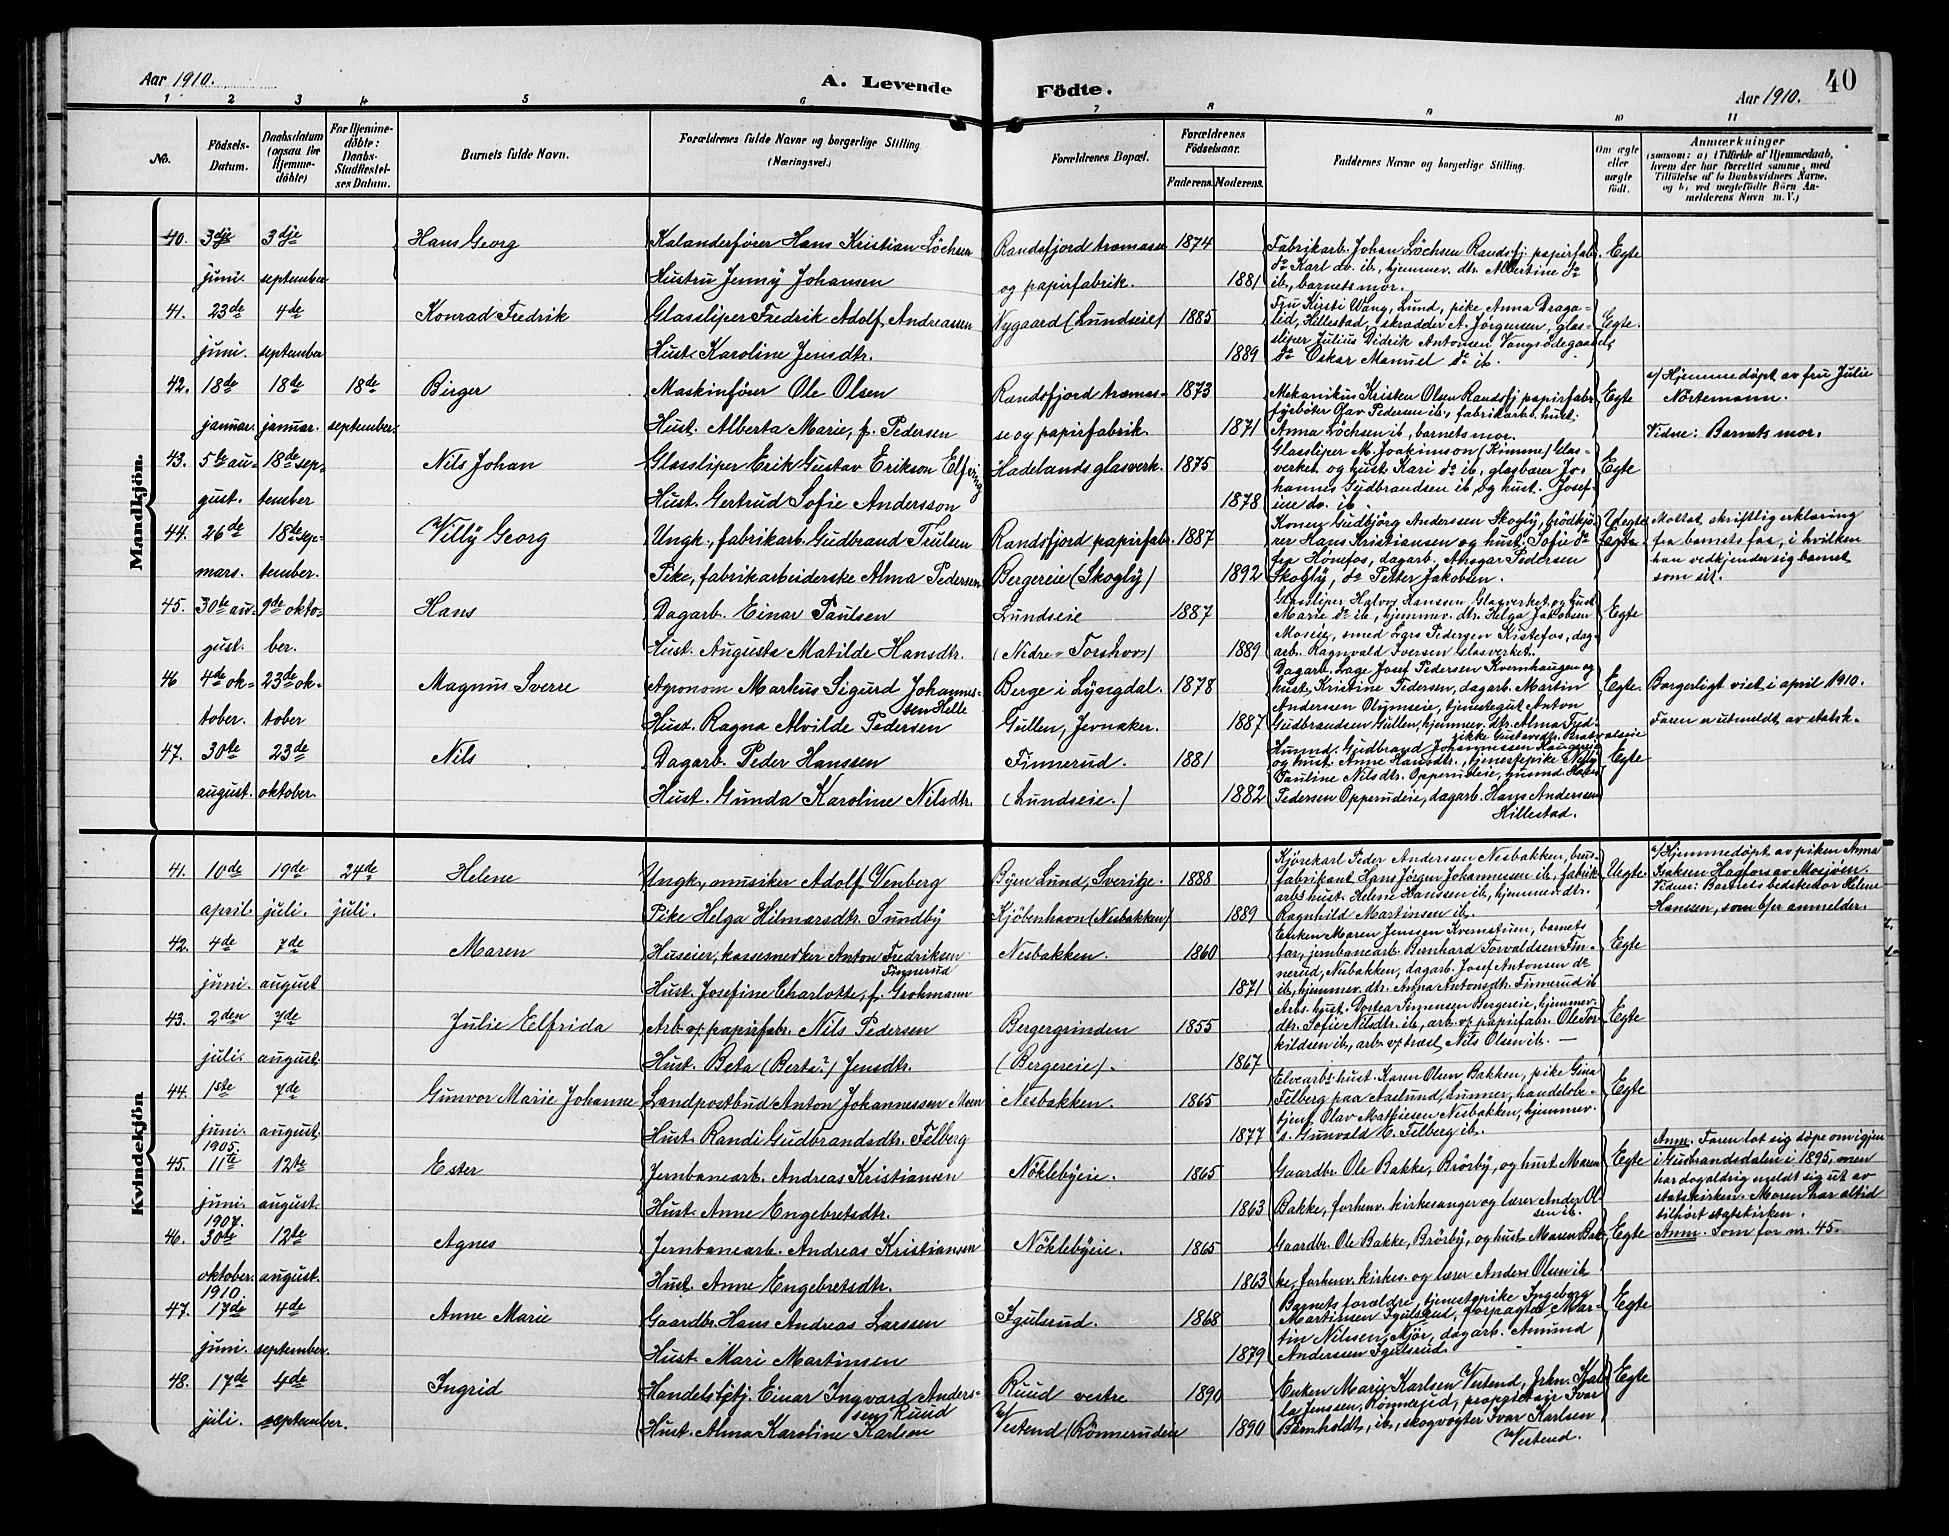 Aar 1910.
A. Levende Födte.
Aar 1910.
40
1 2 3 4 5 6 7 8 9 10 11
No.
Födsels-Datum.
Daabsdatum (ogsaa for Hjemmedöbte)
For Hjemmedöbte: Daabs-Stadfestelses Datum.
Barnets fulde Navn.
Forældrenes fulde Navne og borgerlige Stilling (Næringsvei.)
Forældrenes Bopæl.
Forældrenes Födselsaar.
Faderens. Moderens.
Faddernes Navne og borgerlige Stilling.
Om ægte eller uægte födt.
Anmærkninger (saasom: a) i Tilfælde af Hjemmedaab, hvem der har forrettet samme, med Tilföielse af to Daabsvidners Navne, og b) ved uægtefödte Börn Anmelderens Navn m. V.)
Mandkjön.
40. 3dje juni. 3dje september Hans Georg
Kalanderförer Hans Kristian Löchsen
Hustru Jenny Johansen
Randsfjord træmasse og papirfabrik. 1874 1881
Fabrikarb. Johan Löchsen Randsfj. papirfabr.
do Karl do. ib., hjemmev. dtr. Albertine do
ib., barnets mor.
Egte
41. 23de juni. 4de september Konrad Fredrik
Glassliper Fredrik Adolf Andreassen
Hust. Karoline Jensdtr.
Nygaard (Lundseie) 1885 1889
Fru Kirsti Wang, Lund, pike Anna Draga-
lid, Hillestad, skrædder A. Jörgensen, glas-
sliper Julius Didrik Antonsen Vangsødegaard,
do Oskar Manuel do ib.
Egte.
42. 18de januar. 18de januar. 18de september. Birger
Maskinförer Ole Olsen
Hust. Alberta Marie, f. Pedersen
Randsfjord træmasse og papirfabrik. 1873 1871
Mekanikus Kristen Olsen Randsfj papirfabr
fyrbøter Olav Pedersen ib., fabrikarb. hust.
Anna Löchsen ib., barnets mor.
Egte
a/ Hjemmedöpt av fru Julie
Nörtemann.
Vidne: Barnets mor.
43. 5te august. 18de september Nils Johan
Glassliper Erik Gustav Erikson Elfving
Hust. Gertrud Sofie Andersson
Hadelands glasverk. 1875 1878
Glassliper M. Joakimson (Kimme) Glas-
verket og hust. Kari do ib., glasbærer Jo-
hannes Gudbrandsen ib., og hust. Josef-
ine do. ib.
Egte
44. 26de mars. 18de september. Villy Georg
Ungk., fabrikarb. Gudbrand Trulsen
Pike, fabrikarbeiderske Alma Pedersen
Randsfjord papirfab. Bergereie (Skogly) 1887 1892
Konen Gudbjörg Andersen Skogly, brödkjö-
rer Hans Kristiansen og hust. Sofie do
fra Hönefos, dagarb. Ansgar Pedersen
Skogly, do Petter Jakobsen.
Uegte
Mottat skriftlig erklæring
fra barnets far, i hvilken
han vedkjender sig barnet
som sit.
45. 30te august. 9de oktober. Hans
Dagarb. Einar Paulsen
Hust. Augusta Matilde Hansdtr.
Lundseie (Nedre-Torshov) 1887 1889
Glassliper Halvor Hanssen, Glasverket og hust.
Marie do ib., hjemmev. dtr. Helga Jakobsen
Moseie, smed Lars Pedersen Kistefos, dag-
arb. Ragnvald Iversen Glasverket.
Egte
46 4de oktober. 23de oktober Magnus Sverre
Agronom Markus Sigurd Johannessen Helle
Hust. Ragna Alvilde Pedersen
Berge i Lyngdal. Gullen, Jevnaker. 1878 1887
Dagarb. Lage Josef Pedersen Kvernhaugen og
hust. Kristine Pedersen, dagarb. Martin
Andersen Olimseie, tjenestegut Anton
Gudbrandsen Gullen, hjemmev. dtr. Alma Fred-
rikke Gustavsdtr. Bratvolseie
Egte.
Borgerligt viet i april 1910.
Faren er utmeldt av statsk.
47. 30te august. 23de oktober. Nils
Dagarb. Peder Hanssen
Hust. Gunda Karoline Nilsdtr.
Finnerud. (Lundseie.) 1881 1882
Husmd. Gudbrand Johannessen Haugerseie
og hust. Anne Hansdtr., tjenestepike Nelly
Pauline Nilsdtr. Opperudeie, husmd. Hans
Pedersen Opperudeie, dagarb. Hans Andersen
Hillestad.
Egte
Kvindekjön
41. 10de april 19de juli. 24de juli. Helene
Ungk., musiker Adolf Venberg
Pike Helga Hilmarsdtr. Sundby
Byen Lund, Sverige. Kjöbenhavn (Nesbakken) 1888 1889
Kjörekarl Peder Andersen Nesbakken, brus-
fabrikant Hans Jörgen Johannessen ib., fabrik-
arb.s hust. Helene Hanssen ib., hjemmev. dtr.
Ragnhild Martinsen ib.
Uegte
a/ Hjemmedöpt av piken Anna
Isaksen Hagfors av Mosjöen.
Vidne: Barnets bedstemor Helene
Hanssen, som b/er anmelder.
42. 4de juni. 7de august Maren
Huseier, kassesnedker Anton Fredriksen Finnerud
Hust. Josefine Charlotte, f. Grohmann
Nesbakken. 1860 1871
Enken Maren Jenssen Kvernstuen, barnets
far, jernbanearb. Bernhard Torvaldsen Fin-
nerud, Nesbakken, dagarb. Josef Antonsen do
ib., hjemmev. dtr. Anna Antonsdtr. Finnerud ib
Egte
43. 2den juli. 7de august. Julie Elfrida
Arb. v/ papirfabr. Nils Pedersen
Hust. Beta (Berta?) Jensdtr.
Bergergrinden (Bergereie). 1855 1867
Arbs hust. Dortea Simensen Bergereie, hjemmev.
dtr. Sofie Nilsdtr. ib., arb. v/ papirfabr. Ole Tor-
kildsen ib., arb. v/ træsl. Nils Olsen ib. —
Egte
44. 1ste juni. 7de august. Gunvor Marie Johanne
Landpostbud Anton Johannessen Moen
Hust. Randi Gudbrandsdtr. Felberg
Nesbakken. 1865 1877
Elvearb.s hust. Karen Olsen Bakken, pike Gina
Felberg paa Aaslund, Lunner, handelsbe-
tjent Olav Mathiesen Nesbakken, hjemmev.
s. Gunvald E. Felberg ib.
Egte
45. 1905. 11te juni. 12te august. Ester
Jernbanearb. Andreas Kristiansen
Hust. Anne Engebretsdtr.
Nöklebyeie. 1865 1863
Gaardbr. Ole Bakke, Brörby, og hust. Maren
Bakke, forhenv. kirkesanger og lærer Anders Ol-
sen ib.
Egte
Anm. Faren lot sig döpe om igjen
i Gudbrandsdalen i 1895, men
har dog aldrig meldt sig ut av
statskirken. Moren har altid
tilhört statskirken.
46. 1907. 30te oktober. 12te august. Agnes
Jernbanearb. Andreas Kristiansen
Hust. Anne Engebretsdtr.
Nöklebyeie. 1865 1863
Gaardbr. Ole Bakke, Brörby, og hust. Maren Bak-
ke, forhenv. kirkes. og lærer Anders Olsen ib
Egte
Anm. Som for nr. 45.
47. 1910. 17de juni. 4de september. Anne Marie
Gaardbr. Hans Andreas Larssen
Hust. Mari Martinsen
Igulsrud. 1868 1879
Barnets forældre, tjenestepike Ingeborg
Martinsen Igulsrud, forpagter Mar-
tin Nilsen Mjör, dagarb. Amund
Anderssen Igulsrud.
Egte
48. 17de juli. 4de september. Ingrid
Handelsbetj. Einar Ingvard Anderssen Ruud
Hust. Alma Karoline Karlsen
Ruud vestre Vestend (Rönnerudeie 1890 1890
Enken Marie Karlsen Vestend, frkn. Kal-
la Jenssen, Rönnerud, proprietær Ivar
Barnholdt, ib., skogvogter Ivar Karlsen
Vestend.
Egte